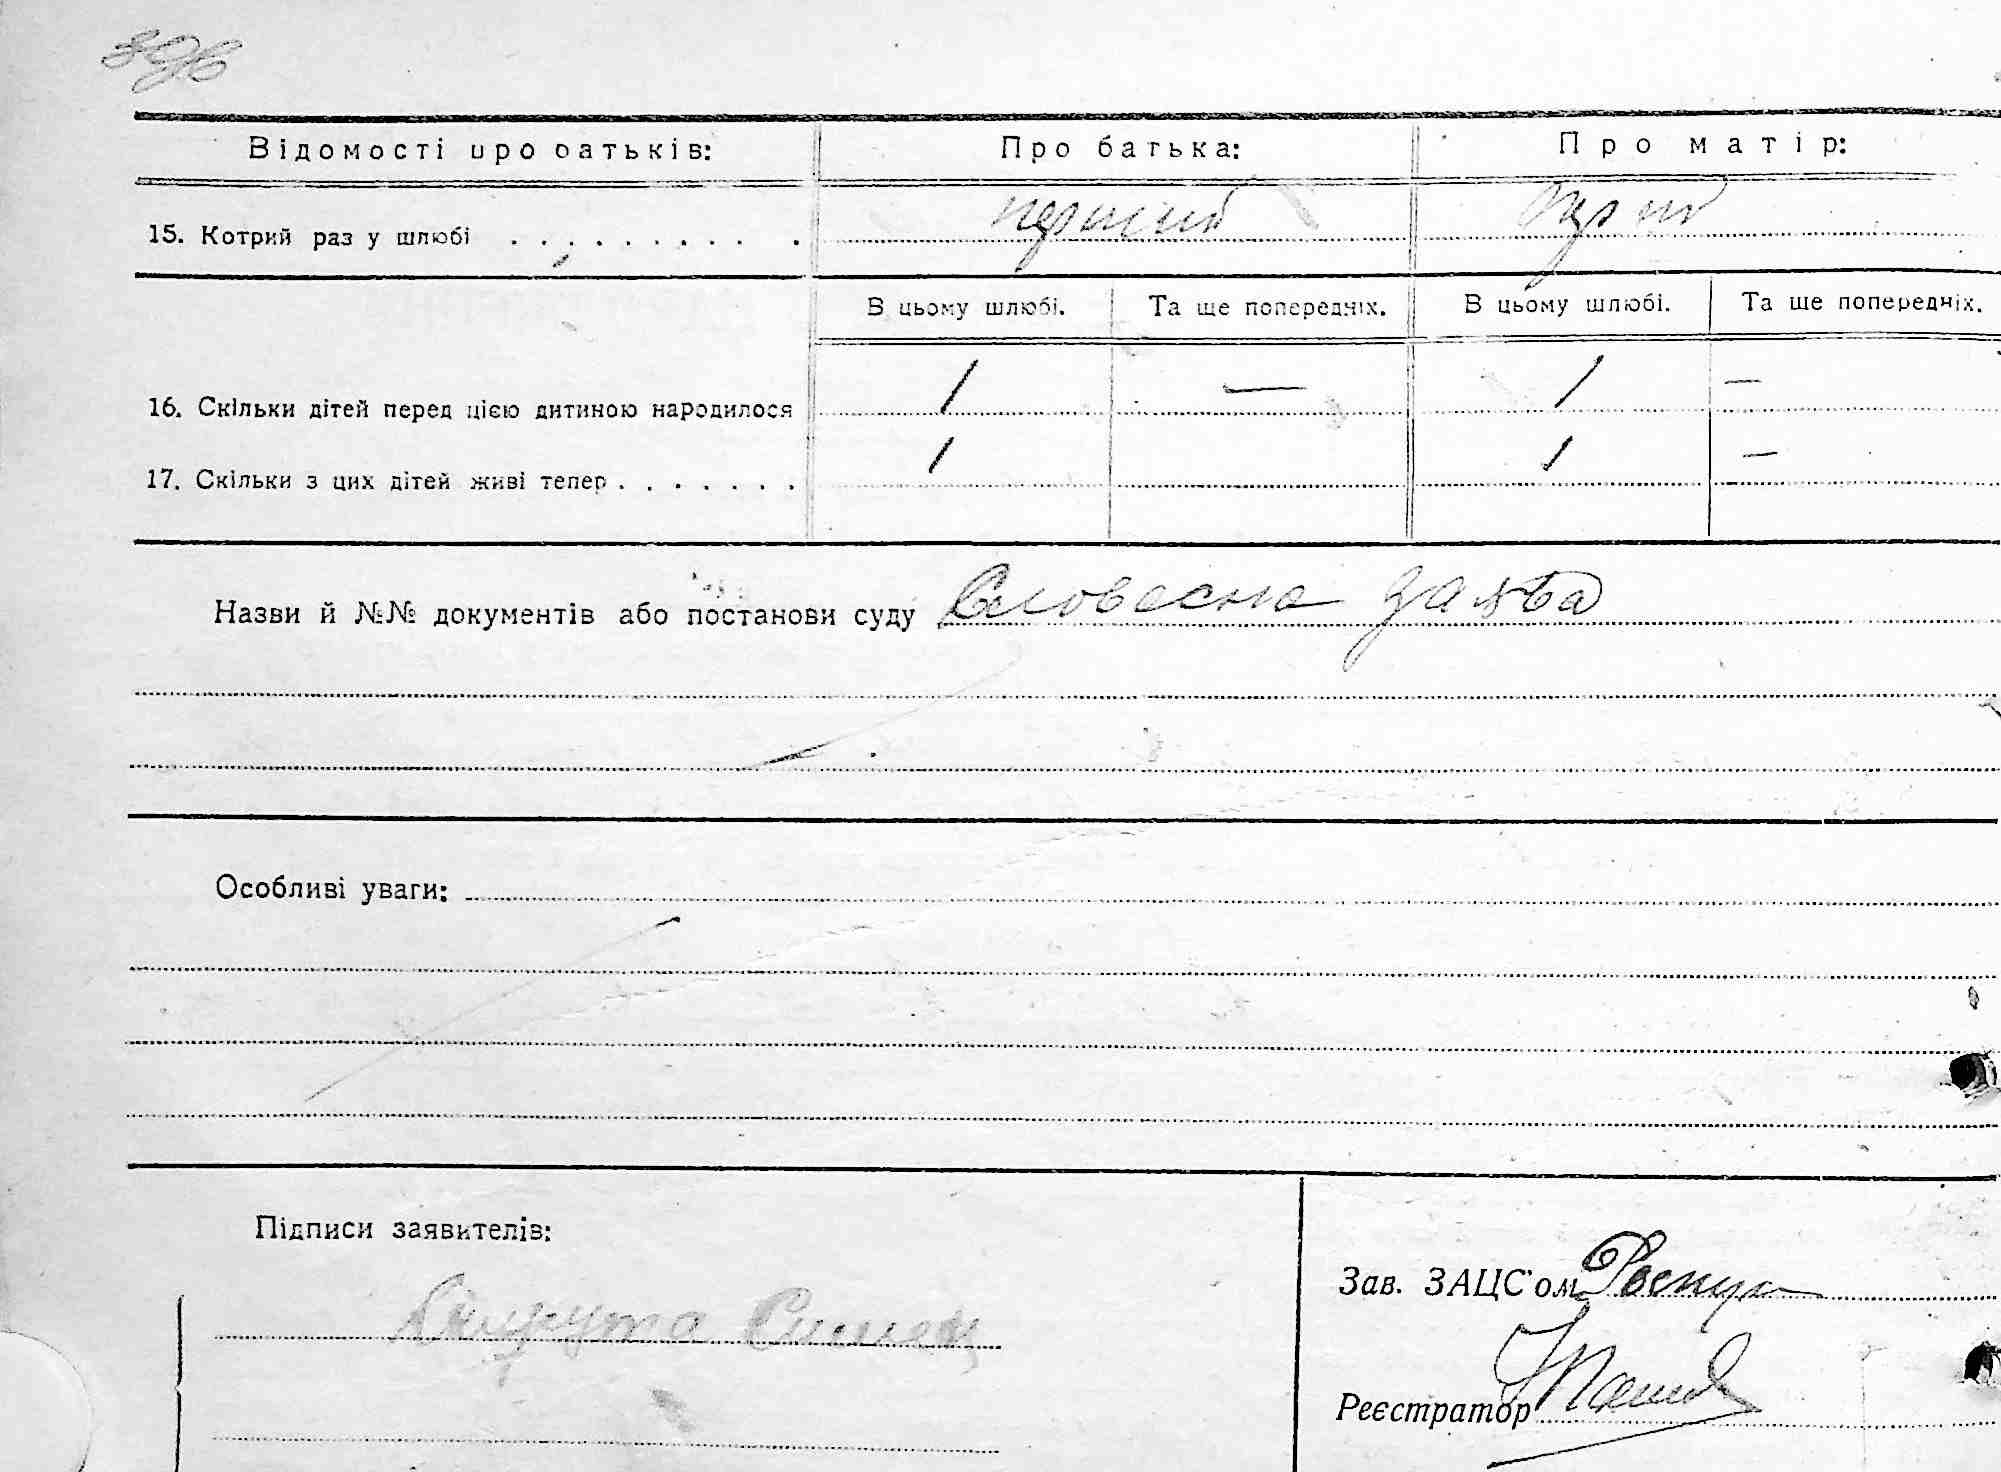 Відомості про батьків: Про батька: Про матір:
15. Котрий раз у шлюбі . . . . . . . . . . перший
В цьому шлюбі. Та ще попередніх. В цьому шлюбі. Та ще попередніх.
16. Скільки дітей перед цією дитиною народилося 1 — 1 —
17. Скільки з цих дітей живі тепер . . . . . . . 1 1 —
Назви й №№ документів або постанови суду Словесна заява
Особливі уваги:
Підписи заявителів:
Зав. ЗАЦС'ом
Реєстратор